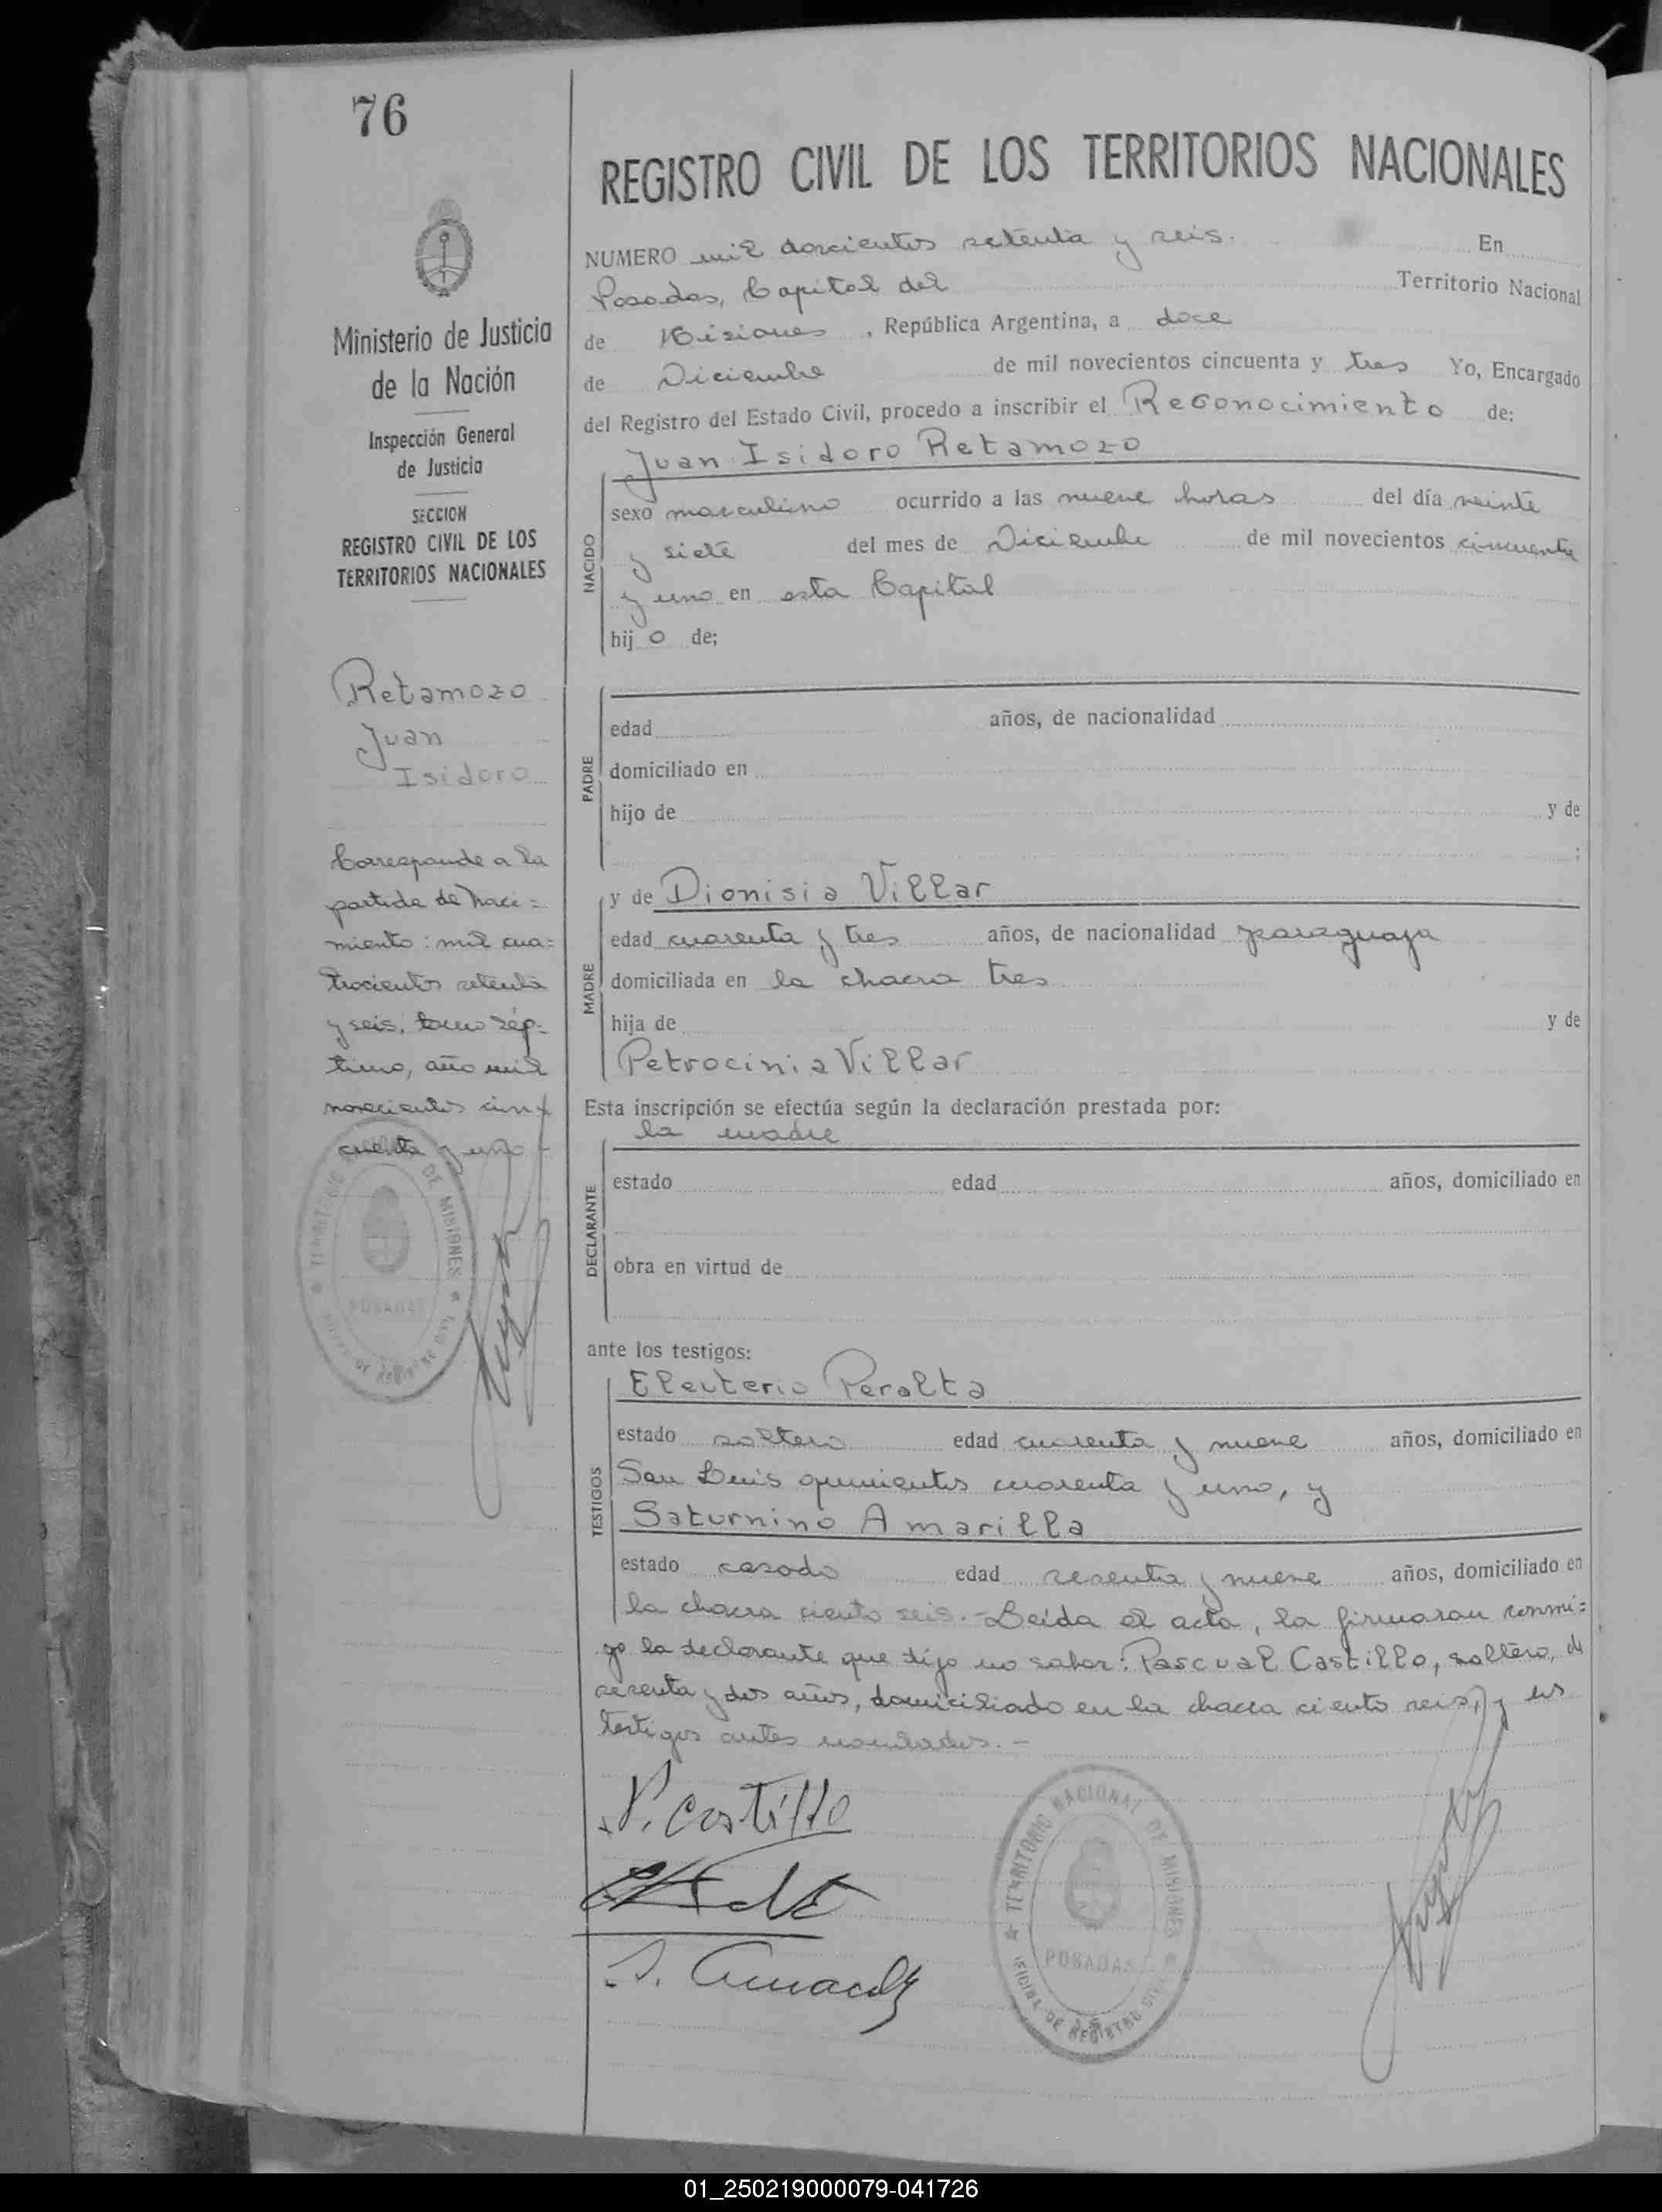 76
Ministerio de Justicia
de la Nación
Inspección General
de Justicia
SECCION
REGISTRO CIVIL DE LOS
TERRITORIOS NACIONALES
Retamozo
Juan
Isidoro
Corresponde a la
partida de naci=
miento: mil cua=
trocientos setenta
y seis, tomo sép-
timo, año mil
novecientos cin=
cuenta y uno -
REGISTRO CIVIL DE LOS TERRITORIOS NACIONALES
NUMERO mil doscientos setenta y seis. En
Posadas, Capital del Territorio Nacional
de Misiones, República Argentina, a doce
de Diciembre de mil novecientos cincuenta y tres Yo, Encargado
del Registro del Estado Civil, procedo a inscribir el Reconocimiento de:
Juan Isidoro Retamozo
NACIDO
sexo masculino ocurrido a las nueve horas del día veinte
y siete del mes de Diciembre de mil novecientos cincuenta
y uno en esta Capital
hijo de;
PADRE
edad años, de nacionalidad
domiciliado en
hijo de y de
;
MADRE
y de Dionisia Villar
edad cuarenta y tres años, de nacionalidad paraguaya
domiciliada en la chacra tres
hija de y de
Petrocinia Villar
Esta inscripción se efectúa según la declaración prestada por:
la madre
DECLARANTE
estado edad años, domiciliado en
obra en virtud de
ante los testigos:
TESTIGOS
Eleuterio Peralta
estado soltero edad cuarenta y nueve años, domiciliado en
San Luis quinientos cuarenta y uno, y
Saturnino Amarilla
estado casado edad sesenta y nueve años, domiciliado en
la chacra ciento seis.- Leída el acta, la firmaran conmi=
go la declarante que dijo no saber: Pascual Castillo, soltero, de
sesenta y dos años, domiciliado en la chacra ciento seis, y los
testigos antes nombrados.-
P. Castillo
S. Amarilla
TERRITORIO NACIONAL DE MISIONES
POSADAS
OFICINA DE REGISTRO CIVIL
TERRITORIO DE MISIONES
POSADAS
DE REGISTRO CIVIL
01_250219000079-041726